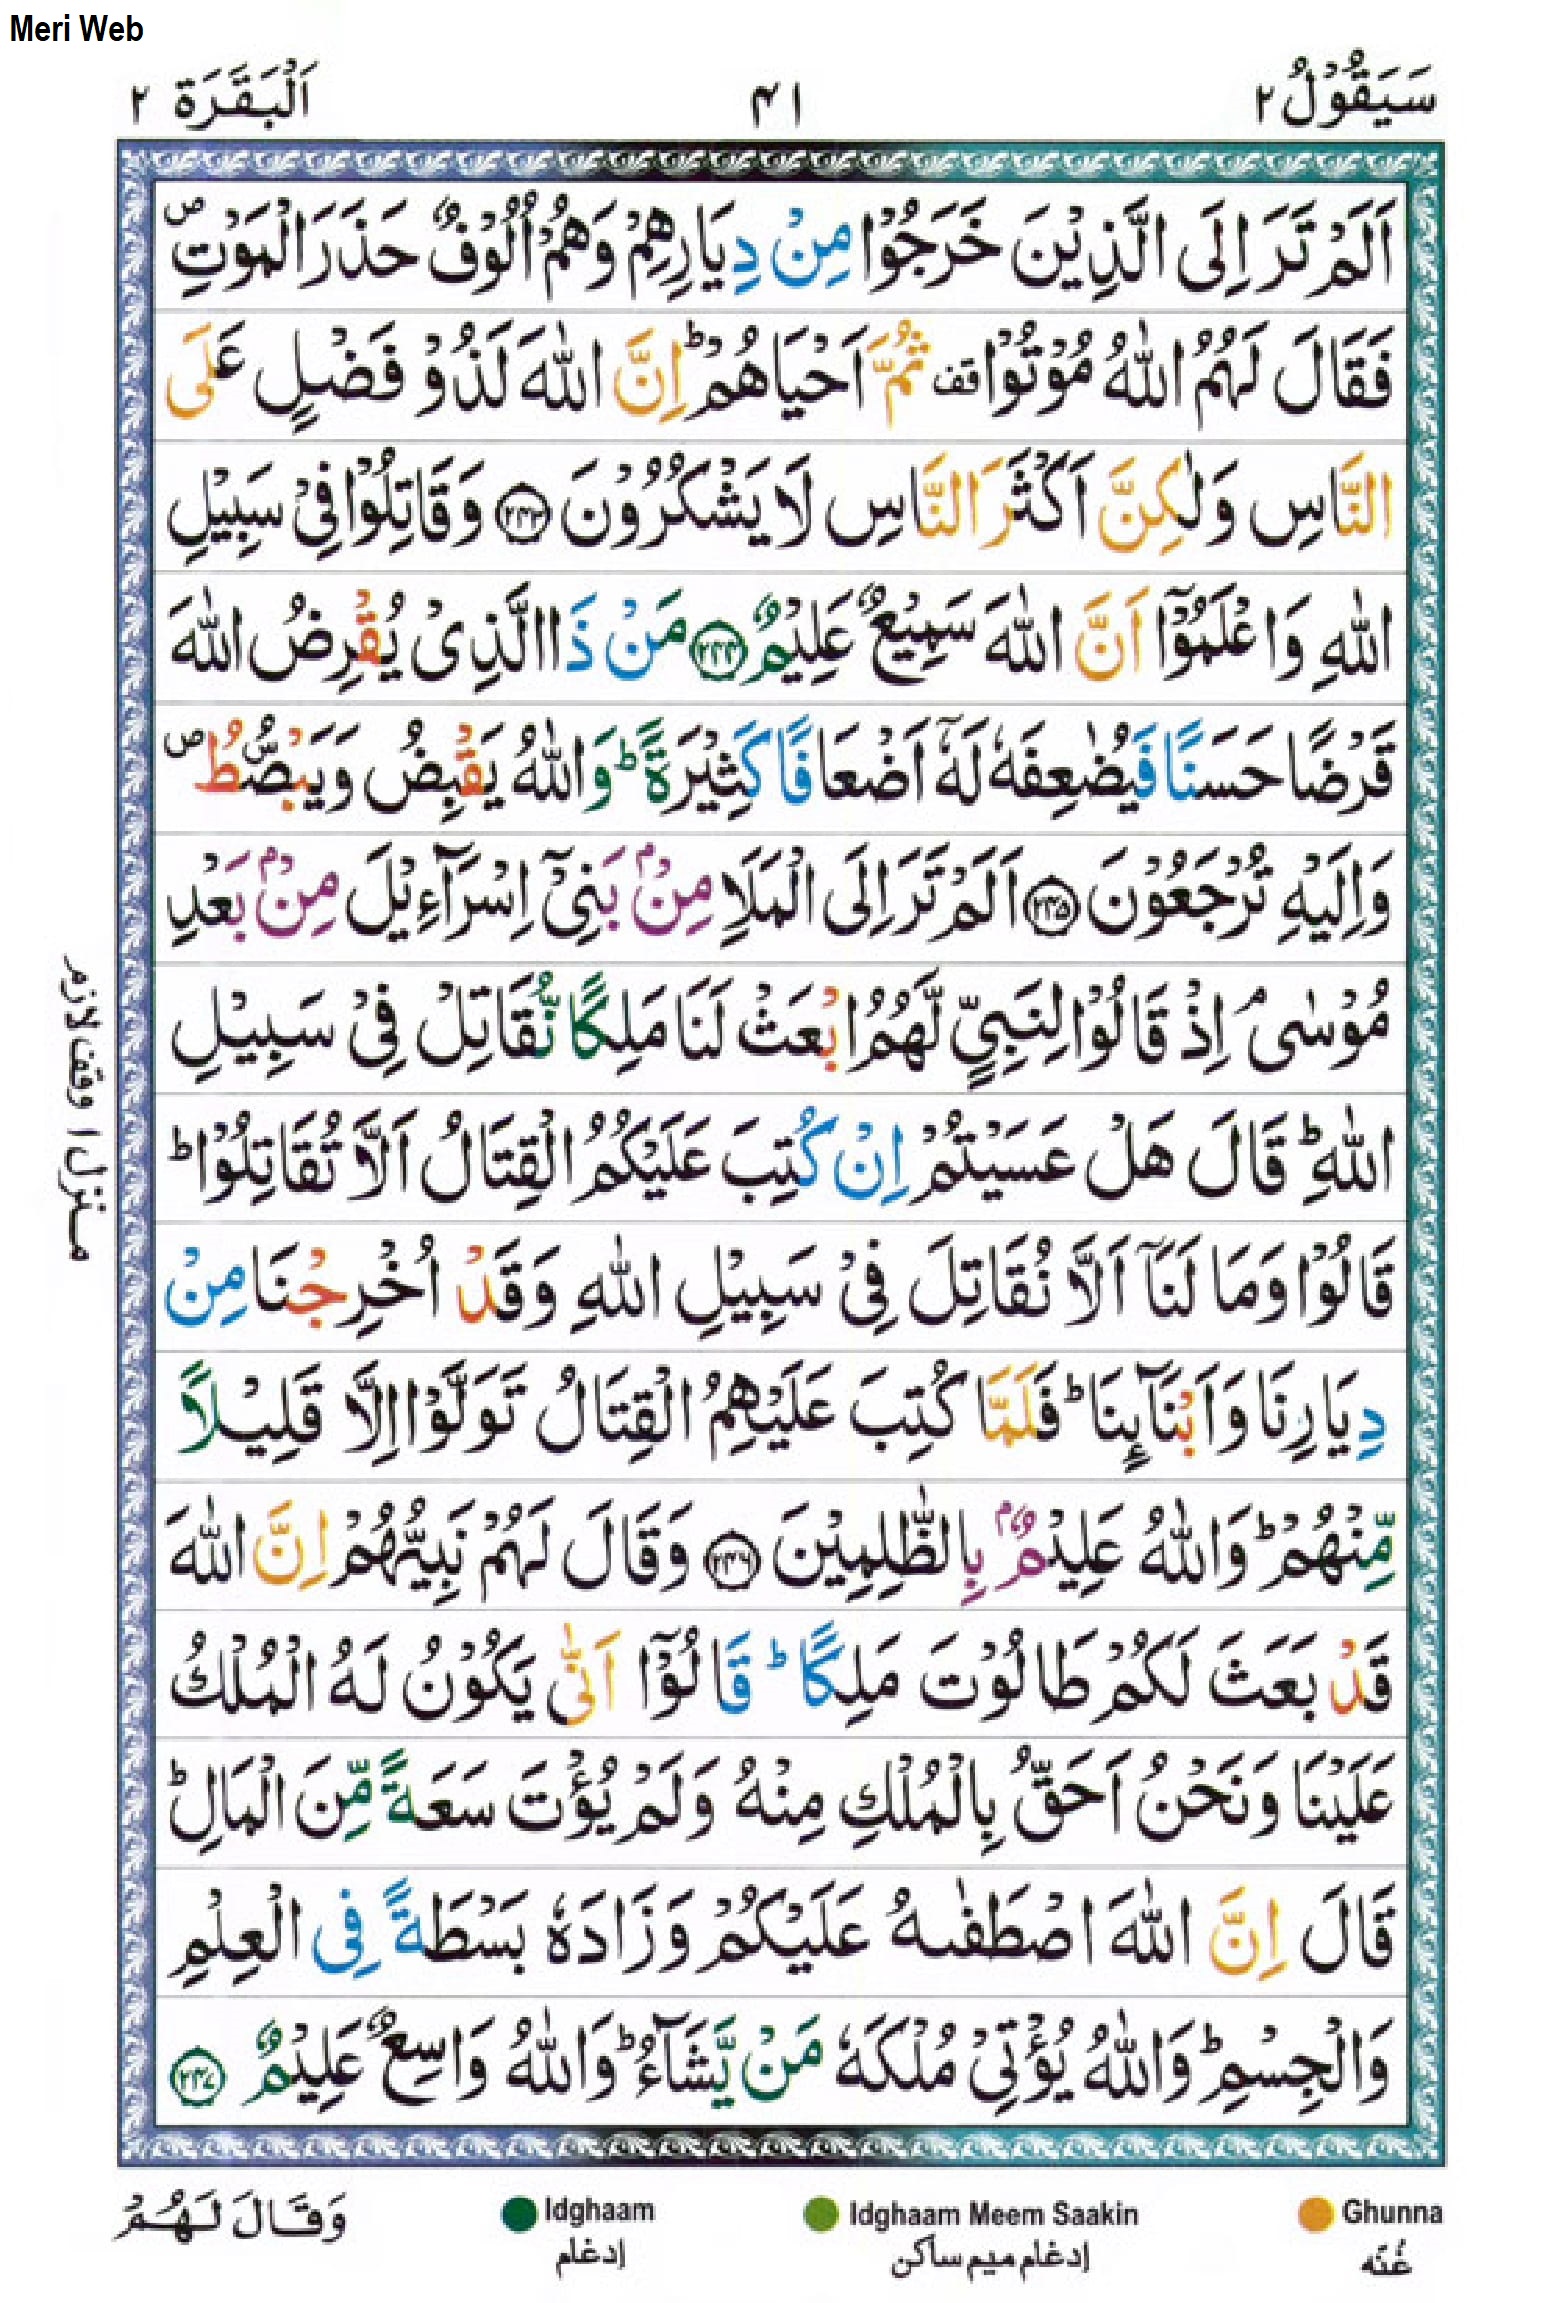 Meri Web
سَيَقُوْلُ ٢ ٤١ اَلْبَقَرَة ٢
اَلَمْ تَرَ اِلَى الَّذِيْنَ خَرَجُوْا مِنْ دِيَارِهِمْ وَهُمْ اُلُوْفٌ حَذَرَ الْمَوْتِ ۪
فَقَالَ لَهُمُ اللّٰهُ مُوْتُوْا قف ثُمَّ اَحْيَاهُمْ ؕ اِنَّ اللّٰهَ لَذُوْ فَضْلٍ عَلَى
النَّاسِ وَلٰكِنَّ اَكْثَرَ النَّاسِ لَا يَشْكُرُوْنَ ﴿۲۴۳﴾ وَقَاتِلُوْا فِىْ سَبِيْلِ
اللّٰهِ وَاعْلَمُوْٓا اَنَّ اللّٰهَ سَمِيْعٌ عَلِيْمٌ ﴿۲۴۴﴾ مَنْ ذَا الَّذِىْ يُقْرِضُ اللّٰهَ
قَرْضًا حَسَنًا فَيُضٰعِفَهٗ لَهٗٓ اَضْعَافًا كَثِيْرَةً ؕ وَاللّٰهُ يَقْبِضُ وَيَبْصُّطُ ۪
وَاِلَيْهِ تُرْجَعُوْنَ ﴿۲۴۵﴾ اَلَمْ تَرَ اِلَى الْمَلَاِ مِنْۢ بَنِىْٓ اِسْرَآءِيْلَ مِنْۢ بَعْدِ
مُوْسٰى ۘ اِذْ قَالُوْا لِنَبِيٍّ لَّهُمُ ابْعَثْ لَنَا مَلِكًا نُّقَاتِلْ فِىْ سَبِيْلِ
اللّٰهِ ؕ قَالَ هَلْ عَسَيْتُمْ اِنْ كُتِبَ عَلَيْكُمُ الْقِتَالُ اَلَّا تُقَاتِلُوْا ؕ
قَالُوْا وَمَا لَنَآ اَلَّا نُقَاتِلَ فِىْ سَبِيْلِ اللّٰهِ وَقَدْ اُخْرِجْنَا مِنْ
دِيَارِنَا وَاَبْنَآىِٕنَا ؕ فَلَمَّا كُتِبَ عَلَيْهِمُ الْقِتَالُ تَوَلَّوْا اِلَّا قَلِيْلًا
مِّنْهُمْ ؕ وَاللّٰهُ عَلِيْمٌۢ بِالظّٰلِمِيْنَ ﴿۲۴۶﴾ وَقَالَ لَهُمْ نَبِيُّهُمْ اِنَّ اللّٰهَ
قَدْ بَعَثَ لَكُمْ طَالُوْتَ مَلِكًا ؕ قَالُوْٓا اَنّٰى يَكُوْنُ لَهُ الْمُلْكُ
عَلَيْنَا وَنَحْنُ اَحَقُّ بِالْمُلْكِ مِنْهُ وَلَمْ يُؤْتَ سَعَةً مِّنَ الْمَالِ ؕ
قَالَ اِنَّ اللّٰهَ اصْطَفٰىهُ عَلَيْكُمْ وَزَادَهٗ بَسْطَةً فِى الْعِلْمِ
وَالْجِسْمِ ؕ وَاللّٰهُ يُؤْتِىْ مُلْكَهٗ مَنْ يَّشَآءُ ؕ وَاللّٰهُ وَاسِعٌ عَلِيْمٌ ﴿۲۴۷﴾
منزل ١ وقف لازم
وَقَالَ لَهُمْ
Idghaam
إدغام
Idghaam Meem Saakin
إدغام ميم ساكن
Ghunna
غُنّه